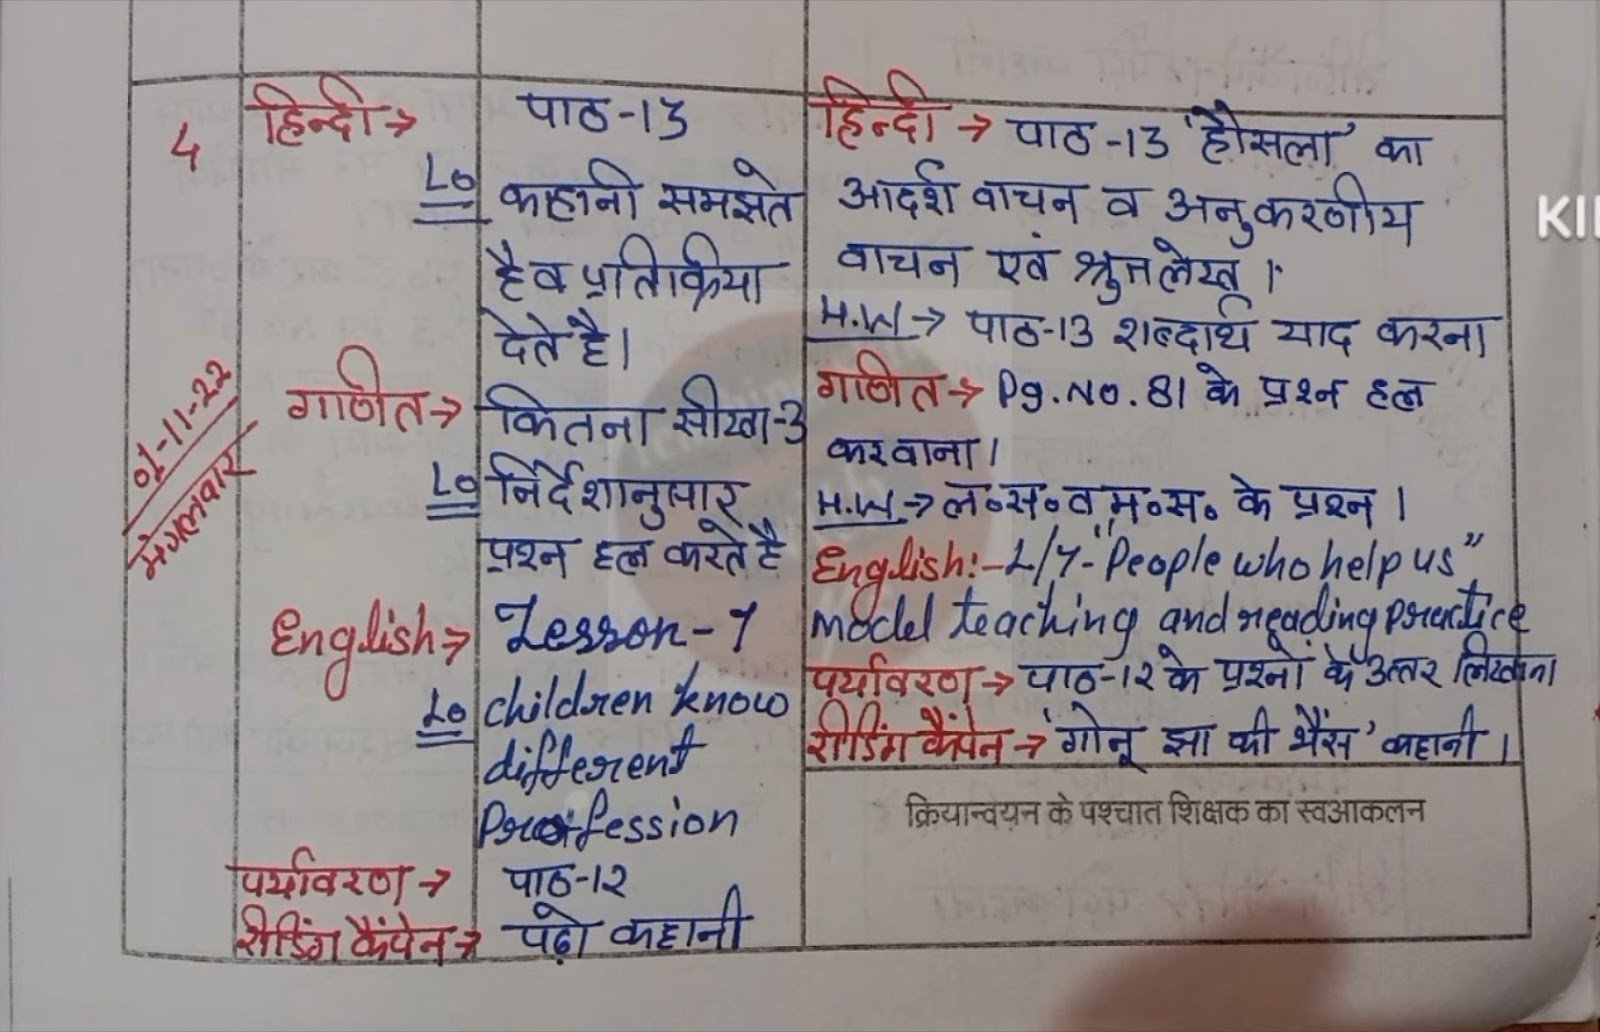 4
01-11-22
मंगलवार
हिन्दी →
पाठ-13
Lo
कहानी समझते
है व प्रतिक्रिया
देते है।
गणित →
कितना सीखा-3
Lo
निर्देशानुसार
प्रश्न हल करते है
English →
Lesson-7
Lo
children know
different
Profession
पर्यावरण →
पाठ-12
रीडिंग कैंपेन →
पढ़ो कहानी
हिन्दी → पाठ-13 'हौसला' का
आदर्श वाचन व अनुकरणीय
वाचन एवं श्रुतलेख।
H.W → पाठ-13 शब्दार्थ याद करना
गणित → Pg.No.81 के प्रश्न हल
करवाना।
H.W → ल०स० व म०स० के प्रश्न।
English:- L/7-"People who help us"
model teaching and reading practice
पर्यावरण → पाठ-12 के प्रश्नों के उत्तर लिखाना
रीडिंग कैंपेन → 'गोनू झा की भैंस' कहानी।
क्रियान्वयन के पश्चात शिक्षक का स्वआकलन
KI